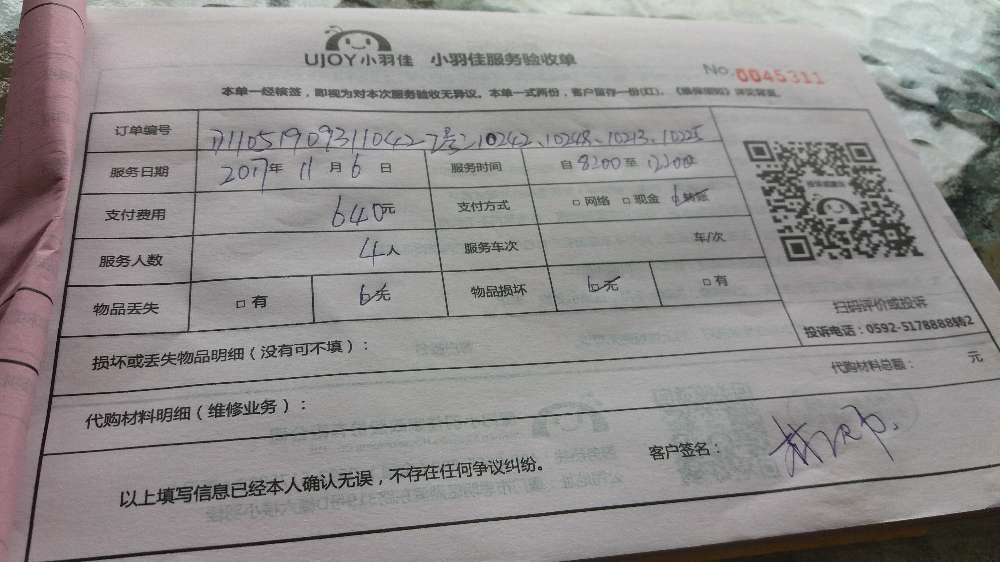 UJOY小羽佳 小羽佳服务验收单
No. 0045311
本单一经核签，即视为对本次服务验收无异议。本单一式两份，客户留存一份(红)。
订单编号 10242、10248、10213、10225
服务日期 2017年 11月 6日 服务时间 自 8:00至 12:00
支付费用 640元 支付方式 □网络 □现金 □转账
服务人数 4人 服务车次 车/次
物品丢失 □有 □无 物品损坏 □无 □有
扫码评价或投诉
投诉电话：0592-5178888转2
损坏或丢失物品明细（没有可不填）：
代购材料明细（维修业务）： 代购材料总额： 元
以上填写信息已经本人确认无误，不存在任何争议纠纷。 客户签名：